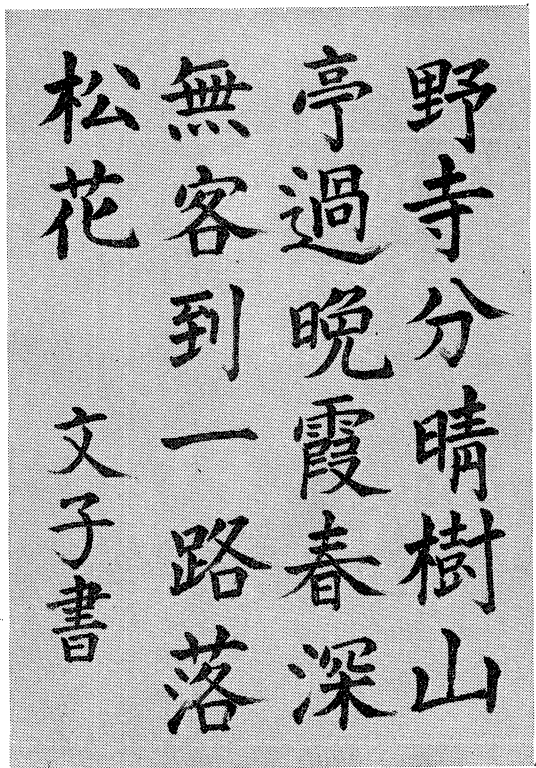 野寺分晴樹山
亭過晚霞春深
無客到一路落
松花
文子書